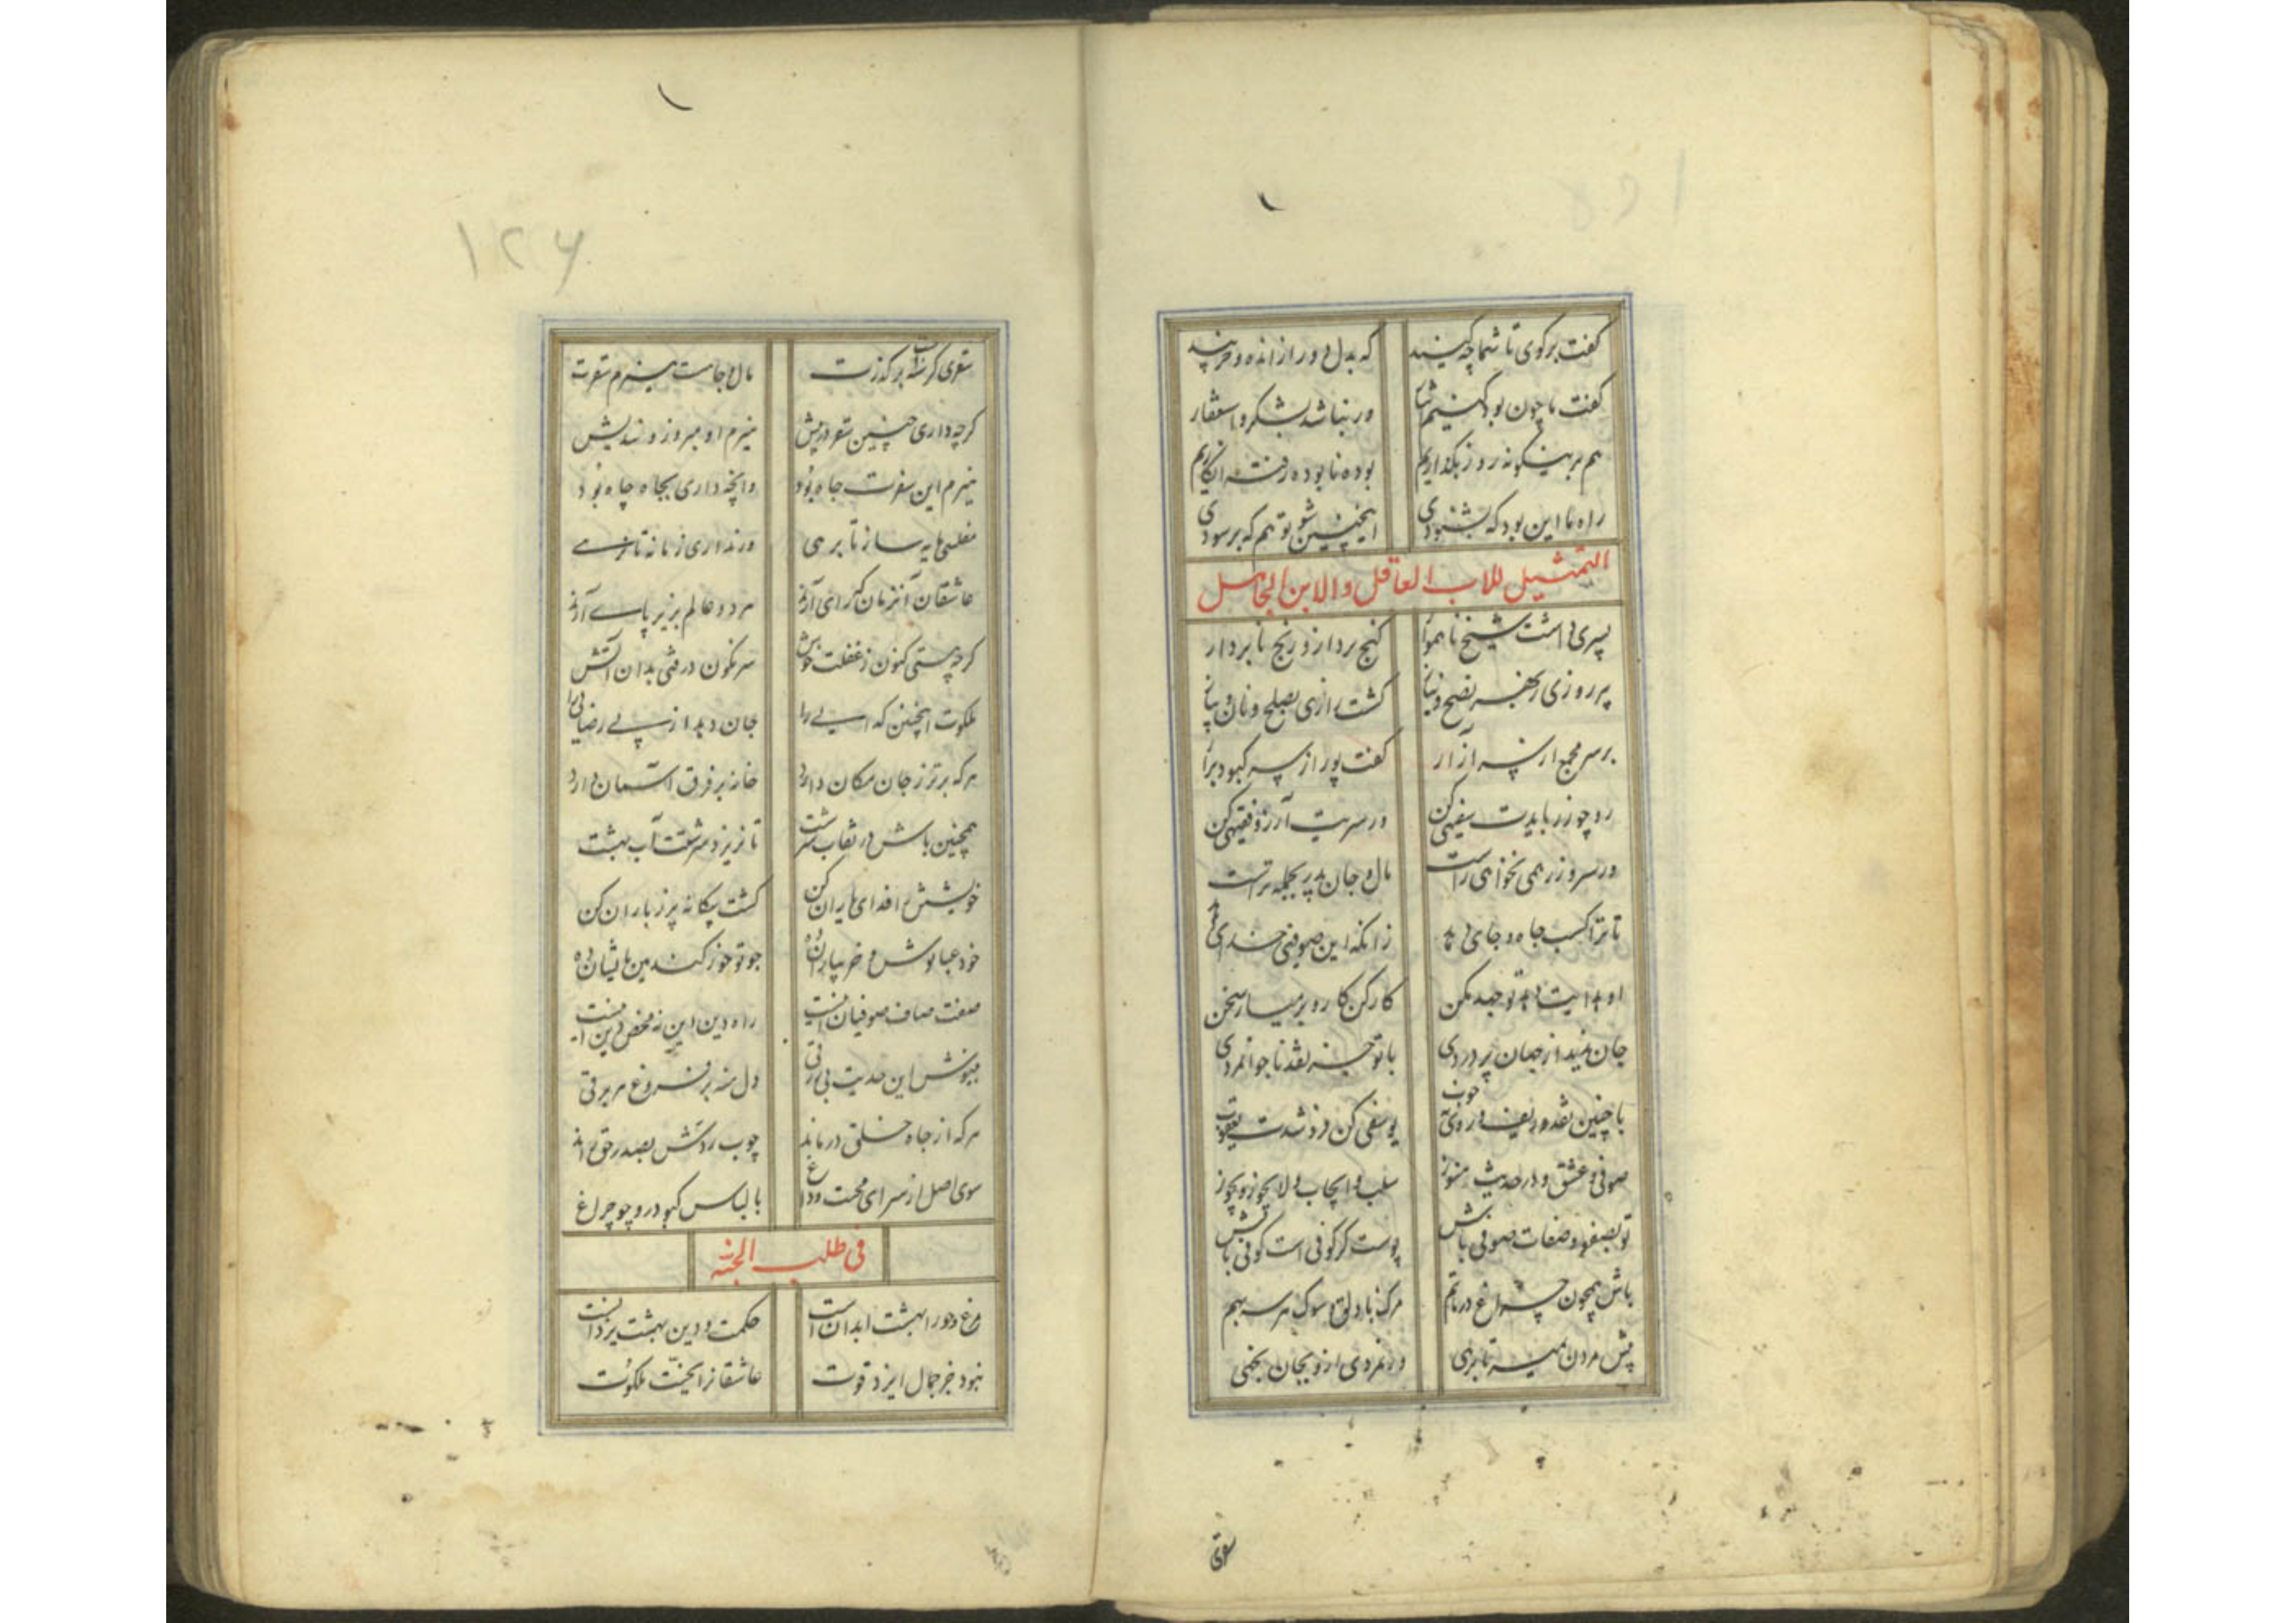 گفت برگوی تا شما چه کنید
که بدل دور از انده و
گفت ما چون بود کنیم نثار
ور نباشد بشکر و استغفار
هم برینگونه روز بگذاریم
بوده نابوده رفته انگاریم
راه ما این بود که بشنودی
اینچنین شو تو هم که برسودی
التمثیل للاب العاقل والابن الجاهل
پسری داشت شیخ ناهموار
گنج بردار و رنج نابردار
هر روزی
گشت راضی بصلح و نان و پیاز
بر سر مجمع از
گفت پور از
رو چو زر بایدت سفیهی کن
ور سریت آرزو فقیهی کن
ور سر و زر همی نخواهی راست
مال و جان پدر بجمله تراست
تا ترا کسب جاه و جای دهد
زانکه این صوفی خدای دهد
او هدایت دهد تو جهد مکن
کار کن کار و بر میار سخن
جان ندید از جهان پر دردی
با تو جز نقد ناجوانمردی
با چنین نقد و ردیف و روی خوب
یوسفی کن فروشدت یعقوب
صوفی و عشق و در حدیث هنوز
سلب و ایجاب و لا یجوز و یجوز
تو بصفه و صفات صوفی باش
پوست گر کوفی است کوفی باش
باش همچون چراغ در ماتم
مرگ با دلق و سوک هر سه بهم
پیش مردن بمیر تا برهی
ور نمردی ازو بجان بجهی
سفری
۱۲۶
سفری کر بر گذرت
مال و جاهست هیزم سقرت
گرچه داری چنین سقر در پیش
هیزم او میروز و مندیش
هیزم این سفرت جاه بود
وانچه داری بجاه چاه بود
مفلسی مایه ساز تا برهی
ور نداری زمانه تا نرهی
عاشقان آنزمان که رای آرند
هر دو عالم بزیر پای آرند
گرچه هستی کنون ز غفلت خوش
سرنگون در فتی بدان آتش
ملکوت اینچنین که
جان دهد از پی رضایی را
هر که برتر ز جان مکان دارد
خانه بر فرق آسمان دارد
همچنین باش در نقاب سرشت
تا نریزد سرشتت آب بهشت
خویشتن را فدای یاران کن
کشت بیگانه پر ز باران کن
خود عبا پوش و خز بیاران ده
جو تو خور گندمین بایشان ده
صفت صاف صوفیان اینست
راه دین این نه محض دین اینست
مینوش این حدیث بی رزقی
دل منه بر فروغ هر برقی
هر که از جاه خلق درماند
چوب ردش بصدر حق راند
سوی اصل از سرای محنت و داغ
با لباس کبود رو چو چراغ
فی طلب الجنة
مرغ و حور را بهشت ابدانست
حکمت و دین بهشت یزدانست
نبود جز جمال ایزد قوت
عاشقانرا بجنت ملکوت